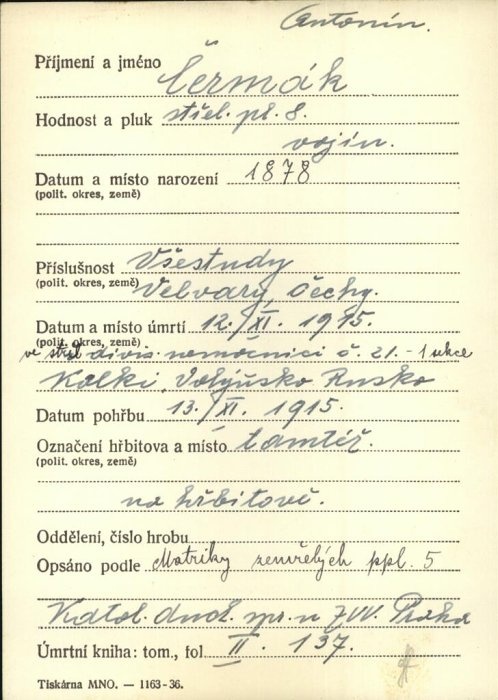 Antonín.
Příjmení a jméno Čermák
Hodnost a pluk střel. pl. 8.
vojín.
Datum a místo narození 1878
(polit. okres, země)
Příslušnost Všestudy
(polit. okres, země) Velvary, Čechy.
Datum a místo úmrtí 12./XI. 1915.
(polit. okres, země)
ve střel divis. nemocnici č. 21. - 1 sekce
Kolki, Volyňsko Rusko
Datum pohřbu 13./XI. 1915.
Označení hřbitova a místo tamtéž.
(polit. okres, země)
na hřbitově.
Oddělení, číslo hrobu
Opsáno podle Matriky zemřelých ppl. 5
Katol. duch. spr. u ZVV. Praha
Úmrtní kniha: tom., fol II. 137.
Tiskárna MNO. — 1163-36.